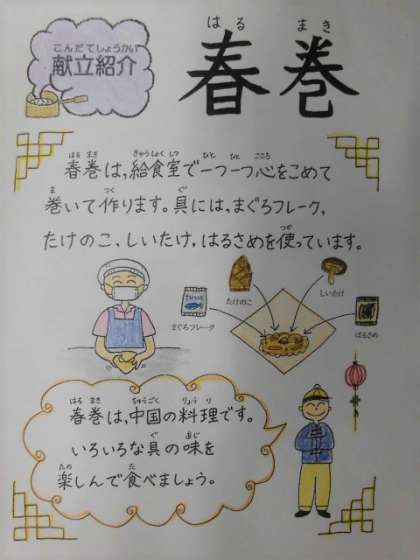 こんだてしょうかい
献立紹介
はる まき
春巻
はる まき きゅうしょく しつ ひと ひと こころ
春巻は,給食室で一つ一つ心をこめて
ま つく ぐ
巻いて作ります。具には,まぐろフレーク,
つか
たけのこ,しいたけ,はるさめを使っています。
たけのこ
しいたけ
まぐろフレーク
はるさめ
はる まき ちゅうごく りょう り
春巻は,中国の料理です。
ぐ あじ
いろいろな具の味を
たの た
楽しんで食べましょう。